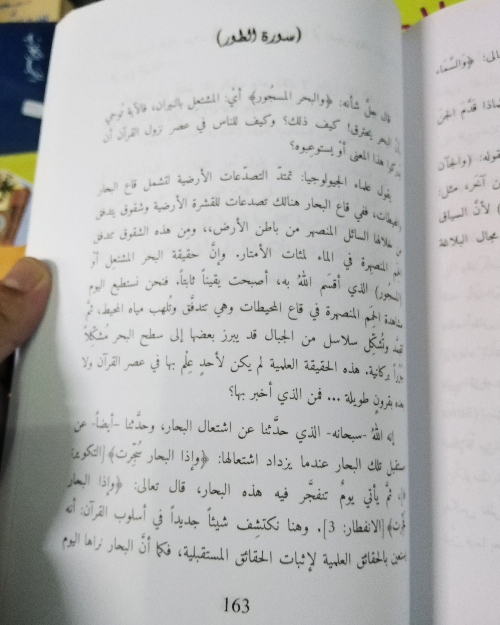 (سورة الطور)
قال جلّ شأنه: ﴿والبحر المسجُور﴾ أيْ: المشتعل بالنيران، فالآية تُوحي
البحر يحترق! كيف ذلك؟ وكيف للناس في عصر نزول القرآن أن
هذا المعنى أوْ يستوعِبوه؟
يقول علماء الجيولوجيا: تمتدّ التصدّعات الأرضية لتشمل قاع البحار
والمحيطات، ففي قاع البحار هنالك تصدعات للقشرة الأرضية وشقوق يتدفق
من خلالها السائل المنصهر من باطن الأرض،، ومِن هذه الشقوق تتدفق
الحِمم المنصهرة في الماء لمئات الأمتار. وإنَّ حقيقة البحر المشتعل أوْ
(المسجُور) الذي أقسَم اللهُ به، أصبحت يقيناً ثابتاً، فنحن نستطيع اليوم
مشاهدة الحِمم المنصهرة في قاع المحيطات وهي تتدفَّق وتُلهب مياه المحيط، ثمَّ
وتُشكِّل سلاسل من الجبال قد يبرز بعضها إلى سطح البحر مُشكِّلاً
جُزُراً بركانية. هذه الحقيقة العلمية لم يكن لأحدٍ عِلْم بها في عصر القرآن ولا
بعده بقرونٍ طويلة ... فمن الذي أخبر بها؟
إنه اللهُ -سبحانه- الذي حدَّثنا عن اشتعال البحار، وحدَّثنا -أيضاً- عن
مستقبل تلك البحار عندما يزداد اشتعالها: ﴿وإذا البحار سُجِّرت﴾[التكوير:
ثمَّ يأتي يومٌ تنفجَّر فيه هذه البحار، قال تعالى: ﴿وإذا البحار
فُجِّرت﴾[الانفطار: 3]. وهنا نكتشِف شيئاً جديداً في أسلوب القرآن: أنه
يستعين بالحقائق العلمية لإثبات الحقائق المستقبلية، فكما أنَّ البحار نراها اليوم
163
﴿والسَّمَاء
لماذا قدَّم الجنَ
قوله: ﴿والجآن
آخَر، مثل:
لأنَّ السياق
مجال البلاغة